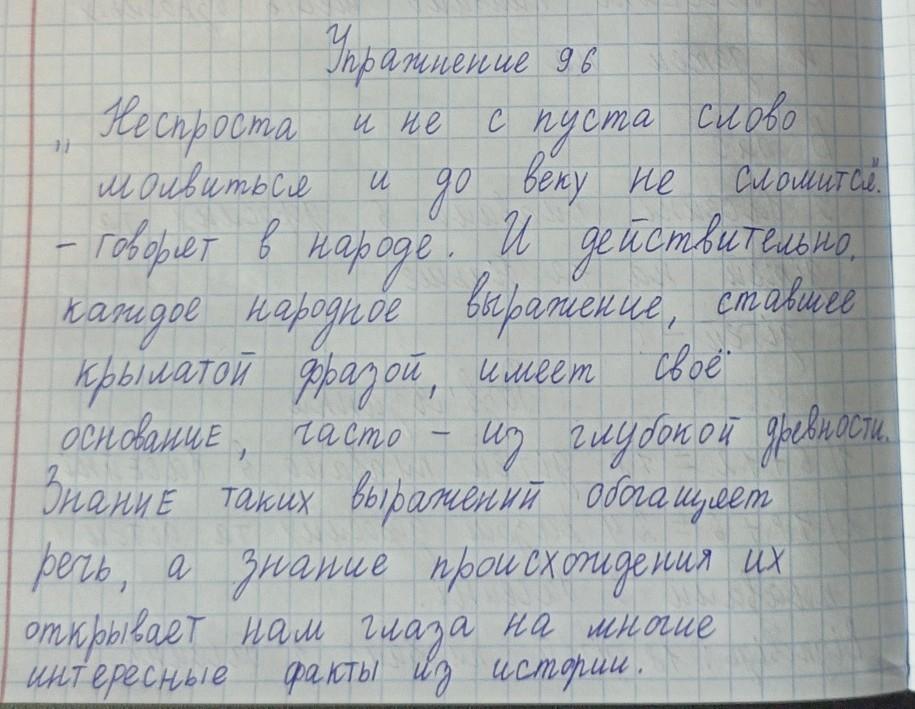 Упражнение 96
„Неспроста и не с пуста слово
молвиться и до веку не сломится".
- говорят в народе. И действительно,
каждое народное выражение, ставшее
крылатой фразой, имеет своё
основание, часто - из глубокой древности.
Знание таких выражений обогащяет
речь, а знание происхождения их
открывает нам глаза на многие
интересные факты из истории.